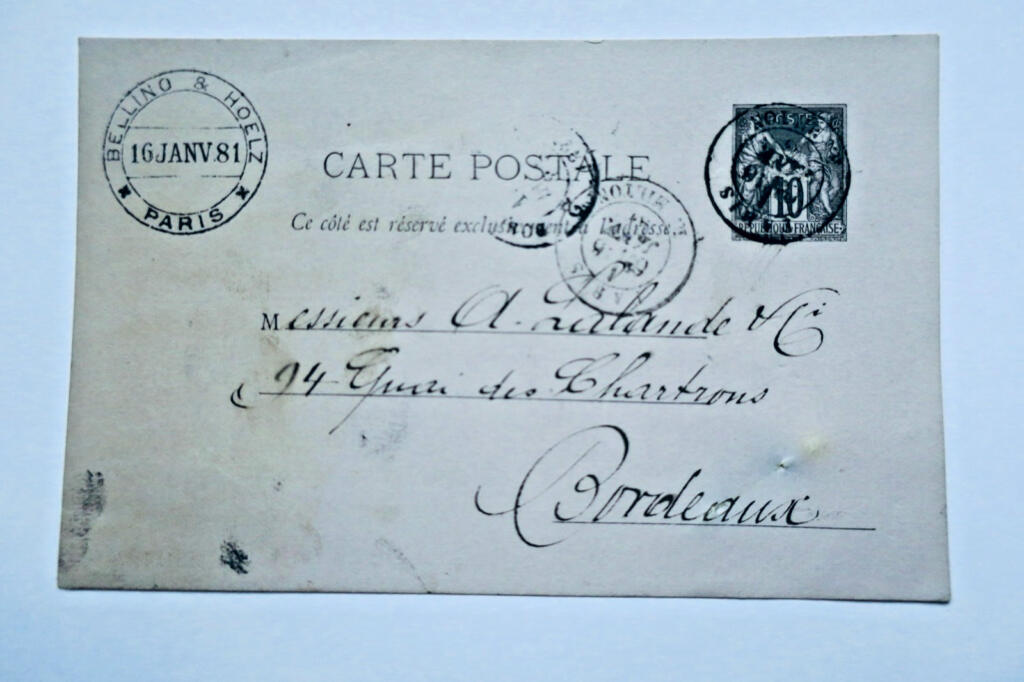 BELLINO & HOELZ
16 JANV. 81
PARIS
POSTES
10
REPUBLIQUE FRANCAISE
CARTE POSTALE
Ce côté est réservé exclusivement à l'adresse.
Messieurs A. Lalande & Ci
94 Quai des Chartrons
Bordeaux